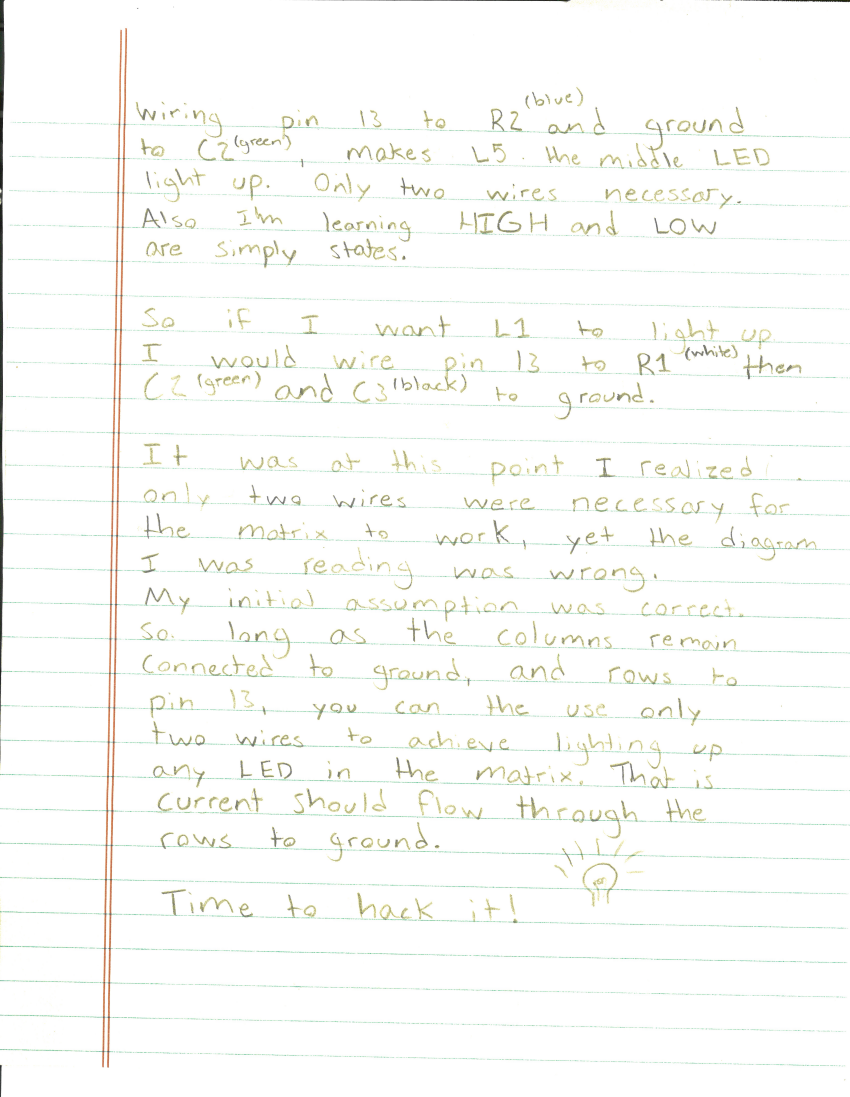 wiring pin 13 to R2 (blue) and ground
to C2 (green), makes L5. the middle LED
light up. Only two wires necessary.
Also I'm learning HIGH and LOW
are simply states.
So if I want L1 to light up
I would wire pin 13 to R1 (white) then
C2 (green) and C3 (black) to ground.
It was at this point I realized
only two wires were necessary for
the matrix to work, yet the diagram
I was reading was wrong.
My initial assumption was correct.
So. long as the columns remain
connected to ground, and rows to
pin 13, you can the use only
two wires to achieve lighting up
any LED in the matrix. That is
current should flow through the
rows to ground.
Time to hack it!